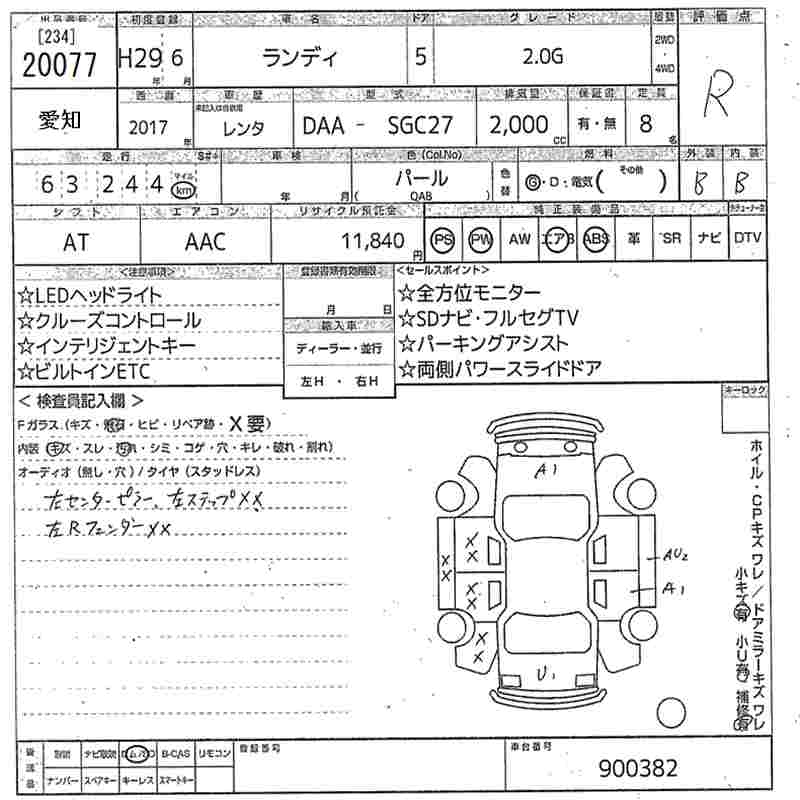 出品番号 初度登録 車名 ドア グレード 駆動 評価点
[234]
20077 H29年 6月 ランディ 5 2.0G 2WD・4WD R
愛知 西暦 車歴 型式 排気量 保証書 定員
未記入は自家用
2017年 レンタ DAA - SGC27 2,000cc 有・無 8名
走行 S#キ 車検 色(Col.No) 燃料 外装 内装
63244 マイル km 年 月 パール (QAB) 色替 G・D・電気( その他 ) B B
シフト エアコン リサイクル預託金 純正装備品
AT AAC 11,840円 PS PW AW エアB ABS 革 SR ナビ DTV
<注意事項> 登録書類有効期限 <セールスポイント>
☆LEDヘッドライト 月 日 ☆全方位モニター
☆クルーズコントロール 輸入車 ☆SDナビ・フルセグTV
☆インテリジェントキー ディーラー・並行 ☆パーキングアシスト
☆ビルトインETC 左H・右H ☆両側パワースライドドア
キーロック
<検査員記入欄>
Fガラス(キズ・飛石・ヒビ・リペア跡・X要)
内装(キズ・スレ・汚れ・シミ・コゲ・穴・キレ・破れ・割れ)
オーディオ(無し・穴)/タイヤ(スタッドレス)
左センターピラー、左ステップXX
左RフェンダーXX
A1
XX
XX
XX
XX
AU2
A1
U1
ホイル・CPキズ ワレ/ドアミラーキズ ワレ
小キズ有 小U有 補修有
後送品 ナビ取説 B-CAS リモコン 登録番号 車台番号
ナンバー スペアキー キーレス スマートキー 900382